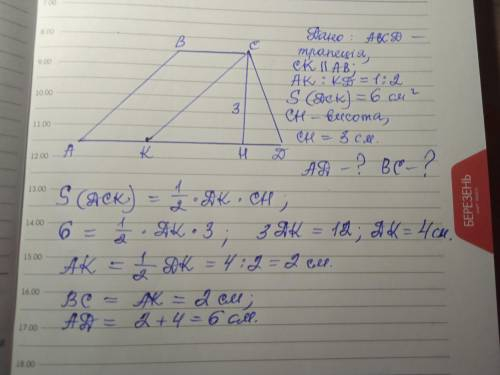 8.00
9.00
10.00
11.00
12.00
13.00
14.00
15.00
16.00
17.00
18.00
B
C
3
A
K
H
D
Дано: ABCD —
трапеція,
CK || AB;
AK : KD = 1:2
S(DCK) = 6 см²
CH – висота,
CH = 3 см.
AD – ? BC – ?
S(DCK) = 1/2 · DK · CH;
6 = 1/2 · DK · 3; 3DK = 12; DK = 4 см.
AK = 1/2 DK = 4 : 2 = 2 см.
BC = AK = 2 см;
AD = 2 + 4 = 6 см.
БЕРЕЗЕНЬ